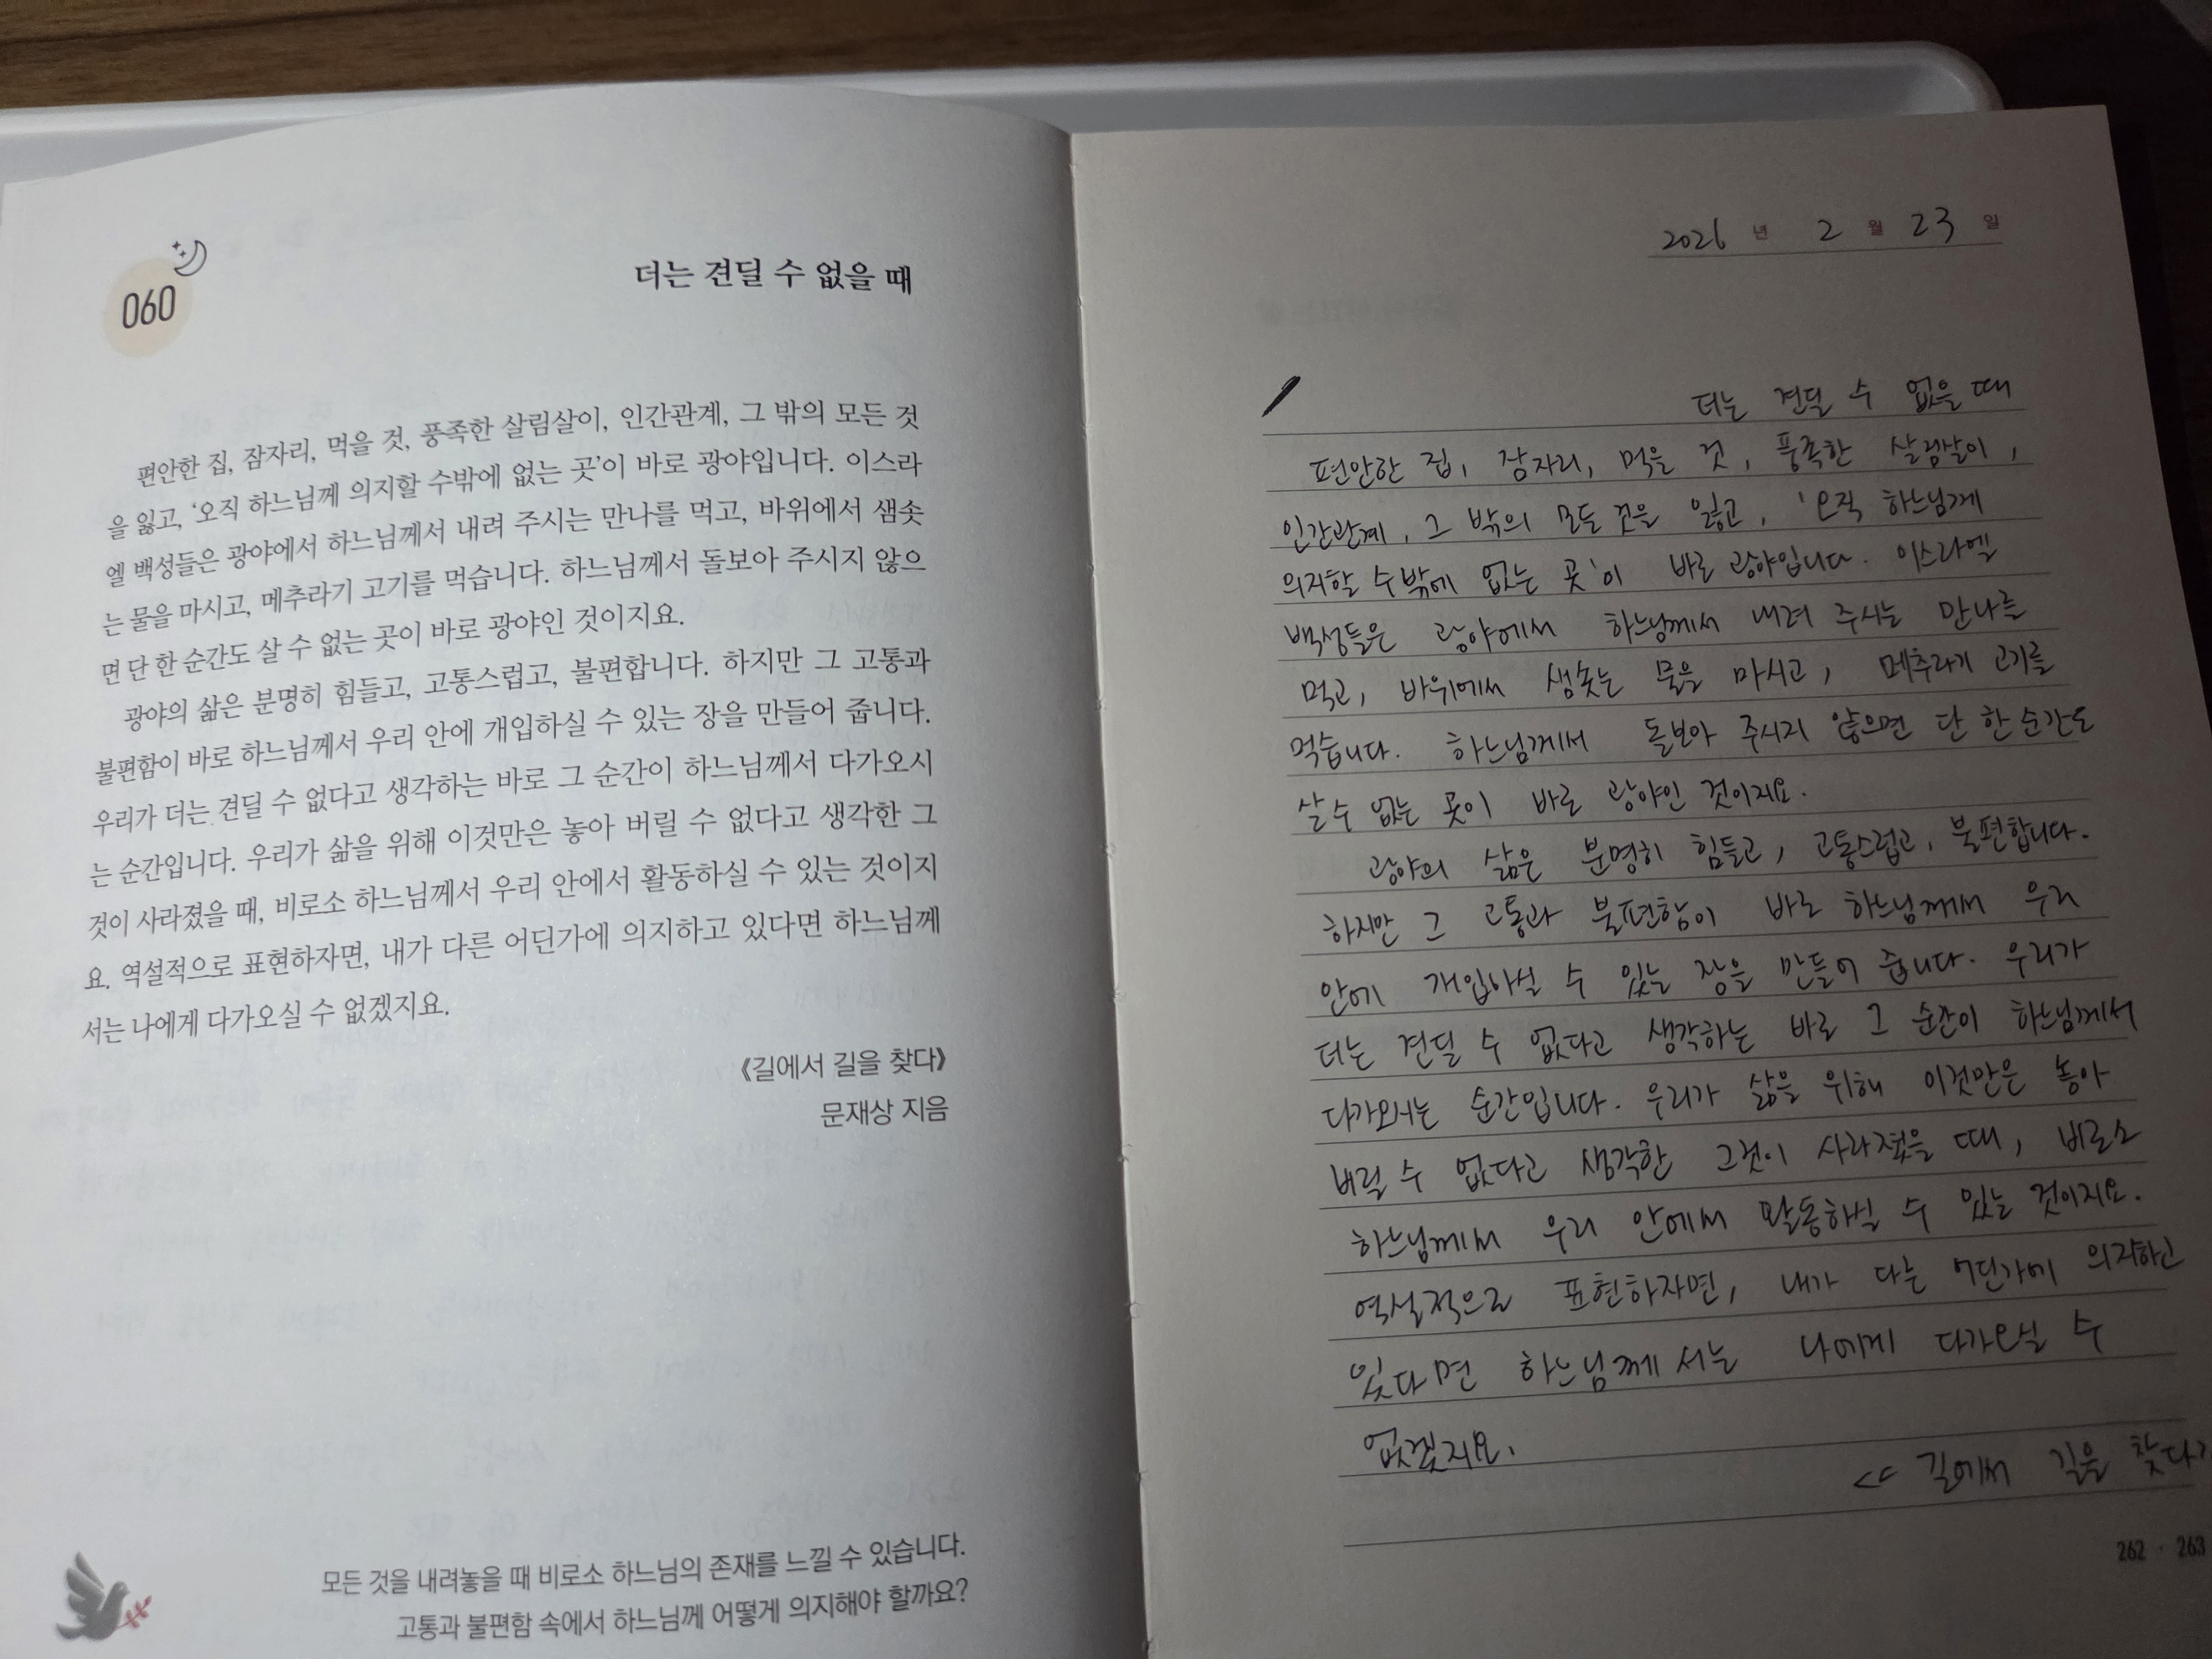 060
더는 견딜 수 없을 때
편안한 집, 잠자리, 먹을 것, 풍족한 살림살이, 인간관계, 그 밖의 모든 것
을 잃고, ‘오직 하느님께 의지할 수밖에 없는 곳’이 바로 광야입니다. 이스라
엘 백성들은 광야에서 하느님께서 내려 주시는 만나를 먹고, 바위에서 샘솟
는 물을 마시고, 메추라기 고기를 먹습니다. 하느님께서 돌보아 주시지 않으
면 단 한 순간도 살 수 없는 곳이 바로 광야인 것이지요.
광야의 삶은 분명히 힘들고, 고통스럽고, 불편합니다. 하지만 그 고통과
불편함이 바로 하느님께서 우리 안에 개입하실 수 있는 장을 만들어 줍니다.
우리가 더는 견딜 수 없다고 생각하는 바로 그 순간이 하느님께서 다가오시
는 순간입니다. 우리가 삶을 위해 이것만은 놓아 버릴 수 없다고 생각한 그
것이 사라졌을 때, 비로소 하느님께서 우리 안에서 활동하실 수 있는 것이지
요. 역설적으로 표현하자면, 내가 다른 어딘가에 의지하고 있다면 하느님께
서는 나에게 다가오실 수 없겠지요.
《길에서 길을 찾다》
문재상 지음
모든 것을 내려놓을 때 비로소 하느님의 존재를 느낄 수 있습니다.
고통과 불편함 속에서 하느님께 어떻게 의지해야 할까요?
2026 년 2 월 23 일
더는 견딜 수 없을 때
편안한 집, 잠자리, 먹을 것, 풍족한 살림살이,
인간관계, 그 밖의 모든 것을 잃고, '오직 하느님께
의지할 수밖에 없는 곳'이 바로 광야입니다. 이스라엘
백성들은 광야에서 하느님께서 내려 주시는 만나를
먹고, 바위에서 샘솟는 물을 마시고, 메추라기 고기를
먹습니다. 하느님께서 돌보아 주시지 않으면 단 한 순간도
살 수 없는 곳이 바로 광야인 것이지요.
광야의 삶은 분명히 힘들고, 고통스럽고, 불편합니다.
하지만 그 고통과 불편함이 바로 하느님께서 우리
안에 개입하실 수 있는 장을 만들어 줍니다. 우리가
더는 견딜 수 없다고 생각하는 바로 그 순간이 하느님께서
다가오시는 순간입니다. 우리가 삶을 위해 이것만은 놓아
버릴 수 없다고 생각한 그것이 사라졌을 때, 비로소
하느님께서 우리 안에서 활동하실 수 있는 것이지요.
역설적으로 표현하자면, 내가 다른 어딘가에 의지하고
있다면 하느님께서는 나에게 다가오실 수
없겠지요.
<< 길에서 길을 찾다
262 · 263